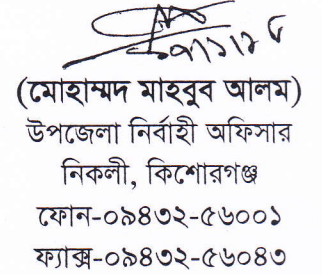 (মোহাম্মদ মাহবুব আলম)
উপজেলা নির্বাহী অফিসার
নিকলী, কিশোরগঞ্জ
ফোন-০৯৪৩২-৫৬০০১
ফ্যাক্স-০৯৪৩২-৫৬০৪৩